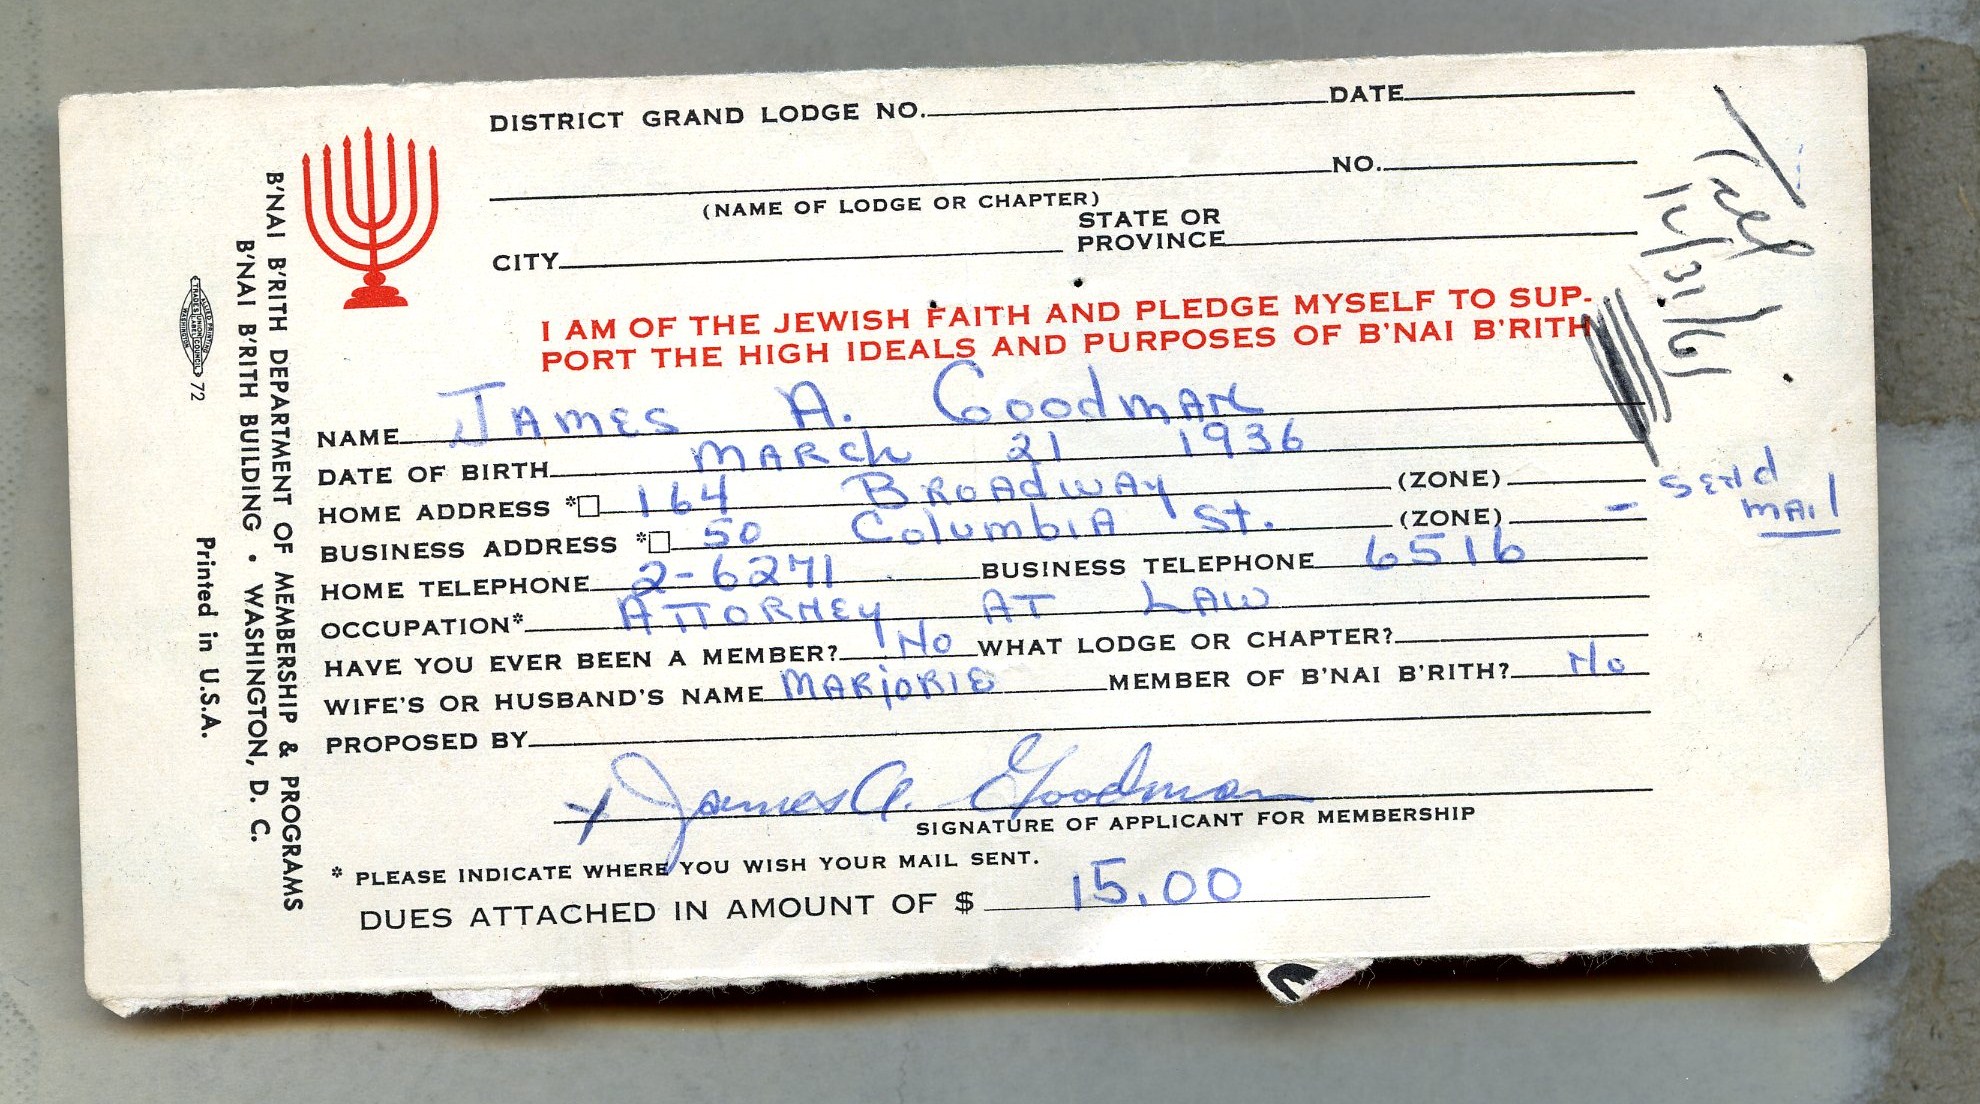 DISTRICT GRAND LODGE NO. DATE
NO.
(NAME OF LODGE OR CHAPTER)
CITY STATE OR PROVINCE
I AM OF THE JEWISH FAITH AND PLEDGE MYSELF TO SUP-
PORT THE HIGH IDEALS AND PURPOSES OF B'NAI B'RITH
NAME James A. Goodman
DATE OF BIRTH March 21 1936
HOME ADDRESS *☐ 164 Broadway (ZONE)
BUSINESS ADDRESS *☐ 50 Columbia St. (ZONE) - send mail
HOME TELEPHONE 2-6271 BUSINESS TELEPHONE 6516
OCCUPATION* Attorney At Law
HAVE YOU EVER BEEN A MEMBER? No WHAT LODGE OR CHAPTER?
WIFE'S OR HUSBAND'S NAME Marjorie MEMBER OF B'NAI B'RITH? No
PROPOSED BY
x James A. Goodman
SIGNATURE OF APPLICANT FOR MEMBERSHIP
* PLEASE INDICATE WHERE YOU WISH YOUR MAIL SENT.
DUES ATTACHED IN AMOUNT OF $ 15.00
B'NAI B'RITH DEPARTMENT OF MEMBERSHIP & PROGRAMS
B'NAI B'RITH BUILDING • WASHINGTON, D. C.
ALLIED PRINTING
TRADES UNION LABEL COUNCIL
WASHINGTON
72
Printed in U.S.A.